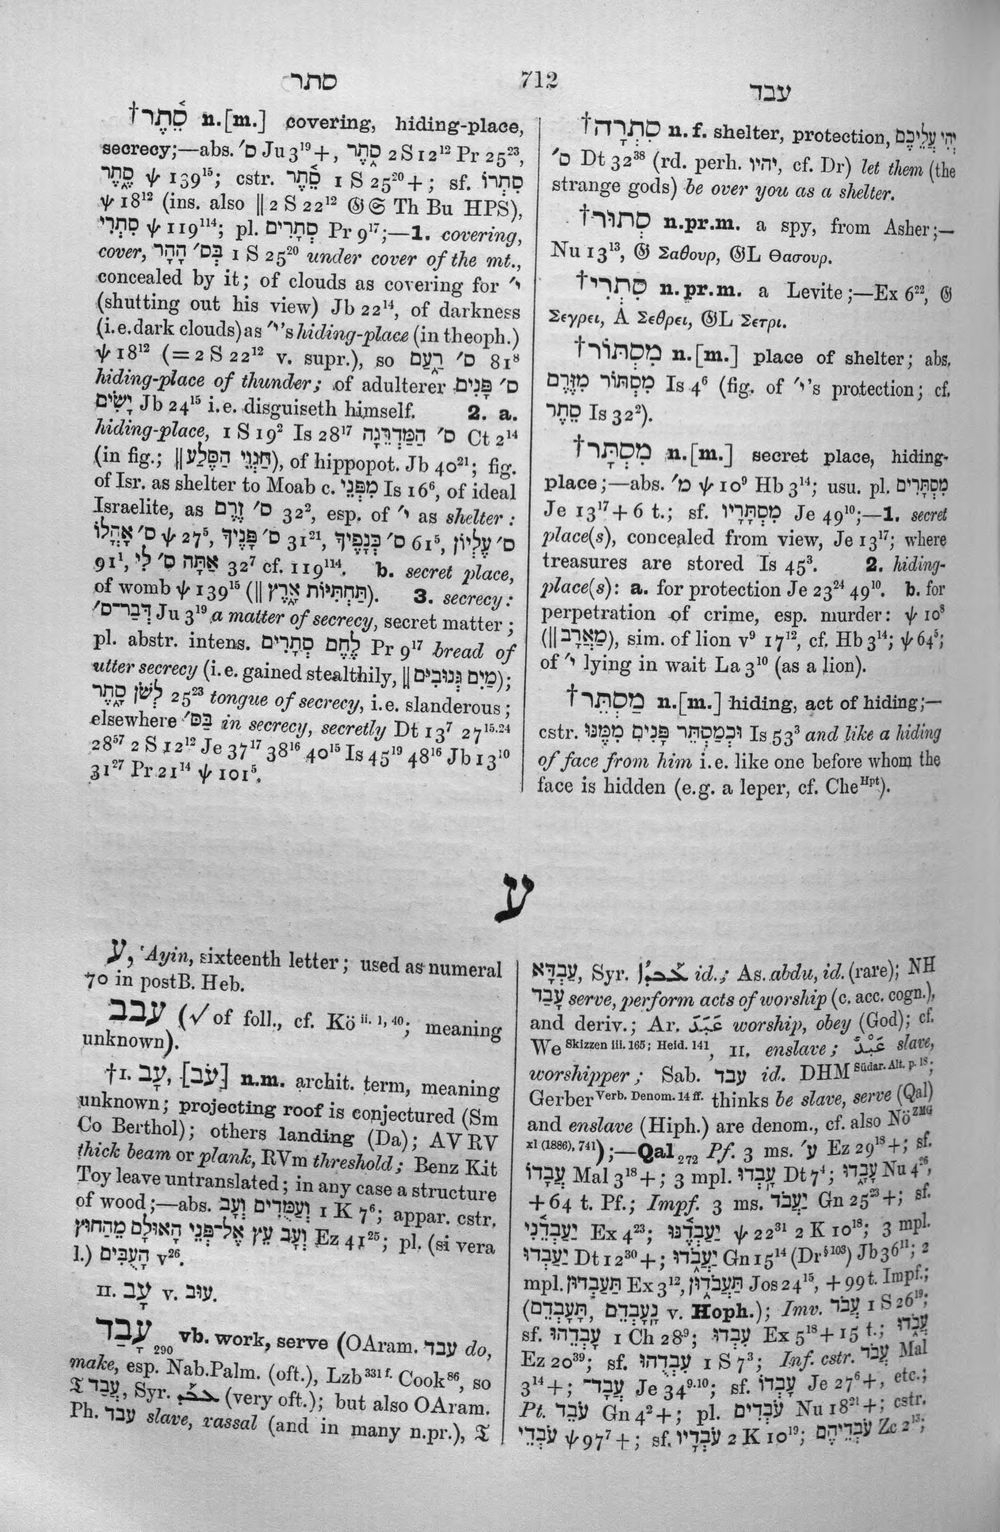 סתר
712
עבד
†סֵ֫תֶר n.[m.] covering, hiding-place,
secrecy;—abs. ס׳ Ju 3¹⁹+, סָתֶר 2 S 12¹² Pr 25²³,
סָתֶר ψ 139¹⁵; cstr. סֵ֫תֶר 1 S 25²⁰+; sf. סִתְרוֹ
ψ 18¹² (ins. also ‖ 2 S 22¹² 𝔊 𝔖 Th Bu HPS),
סִתְרִי ψ 119¹¹⁴; pl. סְתָרִים Pr 9¹⁷;—1. covering,
cover, בְּס׳ הָהָר 1 S 25²⁰ under cover of the mt.,
concealed by it; of clouds as covering for י׳
(shutting out his view) Jb 22¹⁴, of darkness
(i.e. dark clouds) as י׳'s hiding-place (in theoph.)
ψ 18¹² (= 2 S 22¹² v. supr.), so ס׳ רַעַם 81⁸
hiding-place of thunder; of adulterer ס׳ פָּנִים
יָשִׂים Jb 24¹⁵ i.e. disguiseth himself. 2. a.
hiding-place, 1 S 19² Is 28¹⁷ ס׳ הַמַּדְרֵגָה Ct 2¹⁴
(in fig.; ‖ חַגְוֵי הַסֶּלַע), of hippopot. Jb 40²¹; fig.
of Isr. as shelter to Moab c. מִפְּנֵי Is 16⁶, of ideal
Israelite, as ס׳ זֶרֶם 32², esp. of י׳ as shelter:
ס׳ אָהֳלוֹ ψ 27⁵, ס׳ פָּנֶיךָ 31²¹, ס׳ כְּנָפֶיךָ 61⁵, ס׳ עֶלְיוֹן
91¹, אַתָּה ס׳ לִי 32⁷ cf. 119¹¹⁴. b. secret place,
of womb ψ 139¹⁵ (‖ תַּחְתִּיּוֹת אָרֶץ). 3. secrecy:
דְּבַר־ס׳ Ju 3¹⁹ a matter of secrecy, secret matter;
pl. abstr. intens. לֶחֶם סְתָרִים Pr 9¹⁷ bread of
utter secrecy (i.e. gained stealthily, ‖ מַיִם גְּנוּבִים);
לְשׁוֹן סָתֶר 25²³ tongue of secrecy, i.e. slanderous;
elsewhere בַּסּ׳ in secrecy, secretly Dt 13⁷ 27¹⁵·²⁴
28⁵⁷ 2 S 12¹² Je 37¹⁷ 38¹⁶ 40¹⁵ Is 45¹⁹ 48¹⁶ Jb 13¹⁰
31²⁷ Pr 21¹⁴ ψ 101⁵.
†סִתְרָה n.f. shelter, protection, יְהִי עֲלֵיכֶם
ס׳ Dt 32³⁸ (rd. perh. יִהְיוּ, cf. Dr) let them (the
strange gods) be over you as a shelter.
†סְתוּר n.pr.m. a spy, from Asher;—
Nu 13¹³, 𝔊 Σαθουρ, 𝔊L Θασουρ.
†סִתְרִי n.pr.m. a Levite;—Ex 6²², 𝔊
Σεγρει, A Σεθρει, 𝔊L Σετρι.
†מִסְתּוֹר n.[m.] place of shelter; abs.
מִסְתּוֹר מִזֶּרֶם Is 4⁶ (fig. of י׳'s protection; cf.
סֵתֶר Is 32²).
†מִסְתָּר n.[m.] secret place, hiding-
place;—abs. מ׳ ψ 10⁹ Hb 3¹⁴; usu. pl. מִסְתָּרִים
Je 13¹⁷+6 t.; sf. מִסְתָּרָיו Je 49¹⁰;—1. secret
place(s), concealed from view, Je 13¹⁷; where
treasures are stored Is 45³. 2. hiding-
place(s): a. for protection Je 23²⁴ 49¹⁰. b. for
perpetration of crime, esp. murder: ψ 10⁸
(‖ מַאֲרָב), sim. of lion v⁹ 17¹², cf. Hb 3¹⁴; ψ 64⁵;
of י׳ lying in wait La 3¹⁰ (as a lion).
†מַסְתֵּר n.[m.] hiding, act of hiding;—
cstr. וּכְמַסְתֵּר פָּנִים מִמֶּנּוּ Is 53³ and like a hiding
of face from him i.e. like one before whom the
face is hidden (e.g. a leper, cf. Che Hpt).
ע
ע, ʿAyin, sixteenth letter; used as numeral
70 in postB. Heb.
עבב (√ of foll., cf. Kö ii. 1, 40; meaning
unknown).
†I. עָב, [עֹב] n.m. archit. term, meaning
unknown; projecting roof is conjectured (Sm
Co Berthol); others landing (Da); AV RV
thick beam or plank, RVm threshold; Benz Kit
Toy leave untranslated; in any case a structure
of wood;—abs. וְעַמֻּדִים וְעָב 1 K 7⁶; appar. cstr.
וְעָב עֵץ אֶל־פְּנֵי הָאוּלָם מֵהַחוּץ Ez 41²⁵; pl. (si vera
l.) הָעֻבִּים v²⁶.
II. עָב v. עוב.
עָבַד₂₉₀ vb. work, serve (OAram. עבד do,
make, esp. Nab. Palm. (oft.), Lzb 331 f. Cook⁸⁶, so
𝔗 עֲבַד, Syr. ܥܒܰܕ (very oft.); but also OAram.
Ph. עבד slave, vassal (and in many n.pr.), 𝔗
עַבְדָּא, Syr. ܥܰܒܕܳܐ id.; As. abdu, id. (rare); NH
עָבַד serve, perform acts of worship (c. acc. cogn.),
and deriv.; Ar. عَبَدَ worship, obey (God); cf.
We Skizzen iii. 165; Heid. 141, II. enslave; عَبْدٌ slave,
worshipper; Sab. עבד id. DHM Südar. Alt. p. 18;
Gerber Verb. Denom. 14 ff. thinks be slave, serve (Qal)
and enslave (Hiph.) are denom., cf. also Nö ZMG
xl (1886), 741);—Qal₂₇₂ Pf. 3 ms. ע׳ Ez 29¹⁸+; sf.
עֲבָדוֹ Mal 3¹⁸+; 3 mpl. עָבְדוּ Dt 7⁴; עָבָדוּ Nu 4²⁶,
+64 t. Pf.; Impf. 3 ms. יַעֲבֹד Gn 25²³+; sf.
יַעַבְדֵנִי Ex 4²³; יַעַבְדֶנּוּ ψ 22³¹ 2 K 10¹⁸; 3 mpl.
יַעַבְדוּ Dt 12³⁰+; יַעֲבֹדוּ Gn 15¹⁴ (Dr§103) Jb 36¹¹; 2
mpl. תַּעַבְדוּן Ex 3¹², תַּעֲבֹדוּ Jos 24¹⁵, +99 t. Impf.;
(נָעָבְדֵם, תָּעָבְדֵם v. Hoph.); Imv. עֲבֹד 1 S 26¹⁹;
sf. עָבְדֵהוּ 1 Ch 28⁹; עִבְדוּ Ex 5¹⁸+15 t.; עֲבֹדוּ
Ez 20³⁹; sf. עִבְדֻהוּ 1 S 7³; Inf. cstr. עֲבֹד Mal
3¹⁴+; עֲבָד־ Je 34⁹·¹⁰; sf. עָבְדוֹ Je 27⁶+, etc.;
Pt. עֹבֵד Gn 4²+; pl. עֹבְדִים Nu 18²¹+; cstr.
עֹבְדֵי ψ 97⁷+; sf. עֹבְדָיו 2 K 10¹⁹; עֹבְדֵיהֶם Zc 2¹³;